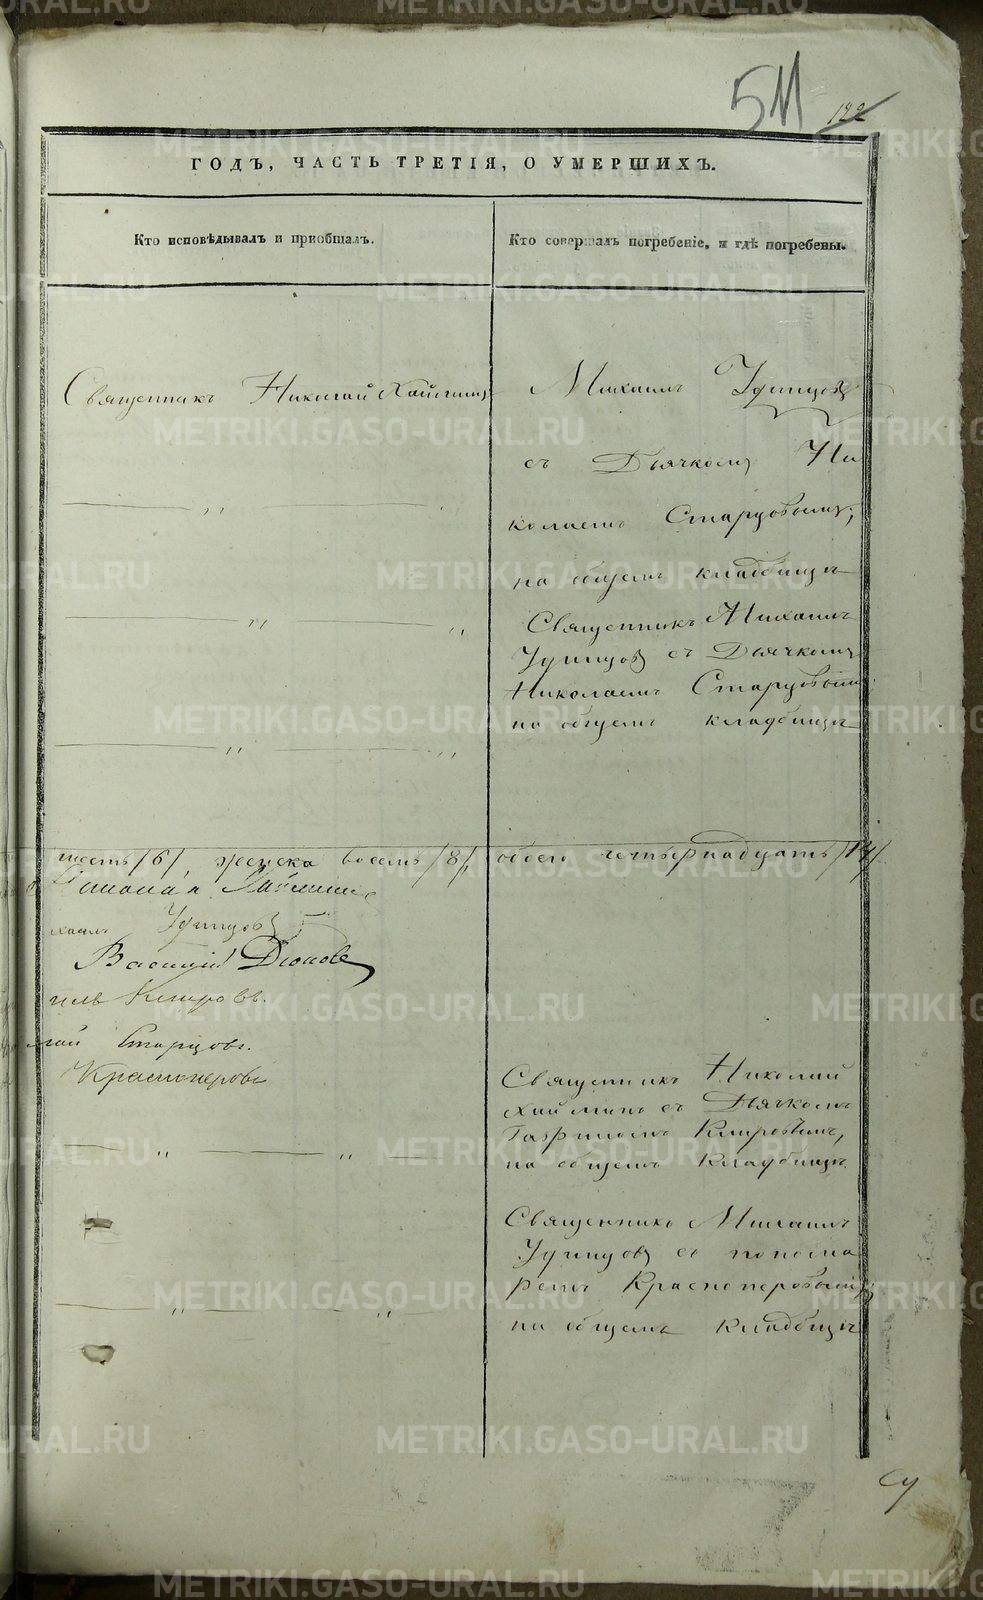 511 122
ГОДЪ, ЧАСТЬ ТРЕТІЯ, О УМЕРШИХЪ.
Кто исповѣдывалъ и приобщалъ.
Кто совершалъ погребеніе, и гдѣ погребены.
Священникъ Николай
Михаилъ Удинцовъ
съ Дьячкомъ Ни
колаемъ Старцовымъ,
на общемъ кладбищѣ
Священникъ Михаилъ
Удинцовъ съ Дьячкомъ
Николаемъ Старцовымъ
на общемъ кладбищѣ
шесть /6/, женска восемь /8/, обоего четырнадцать /14/
хаилъ Удинцовъ
Василій
Кипровъ.
лай Старцовъ.
Красноперовъ
Священникъ Николай
Хайминъ съ Дьячкомъ
Гавриломъ Кипровымъ,
на общемъ кладбищѣ.
Священникъ Михаилъ
Удинцовъ съ понома
ремъ Красноперовымъ,
на общемъ кладбищѣ
METRIKI.GASO-URAL.RU